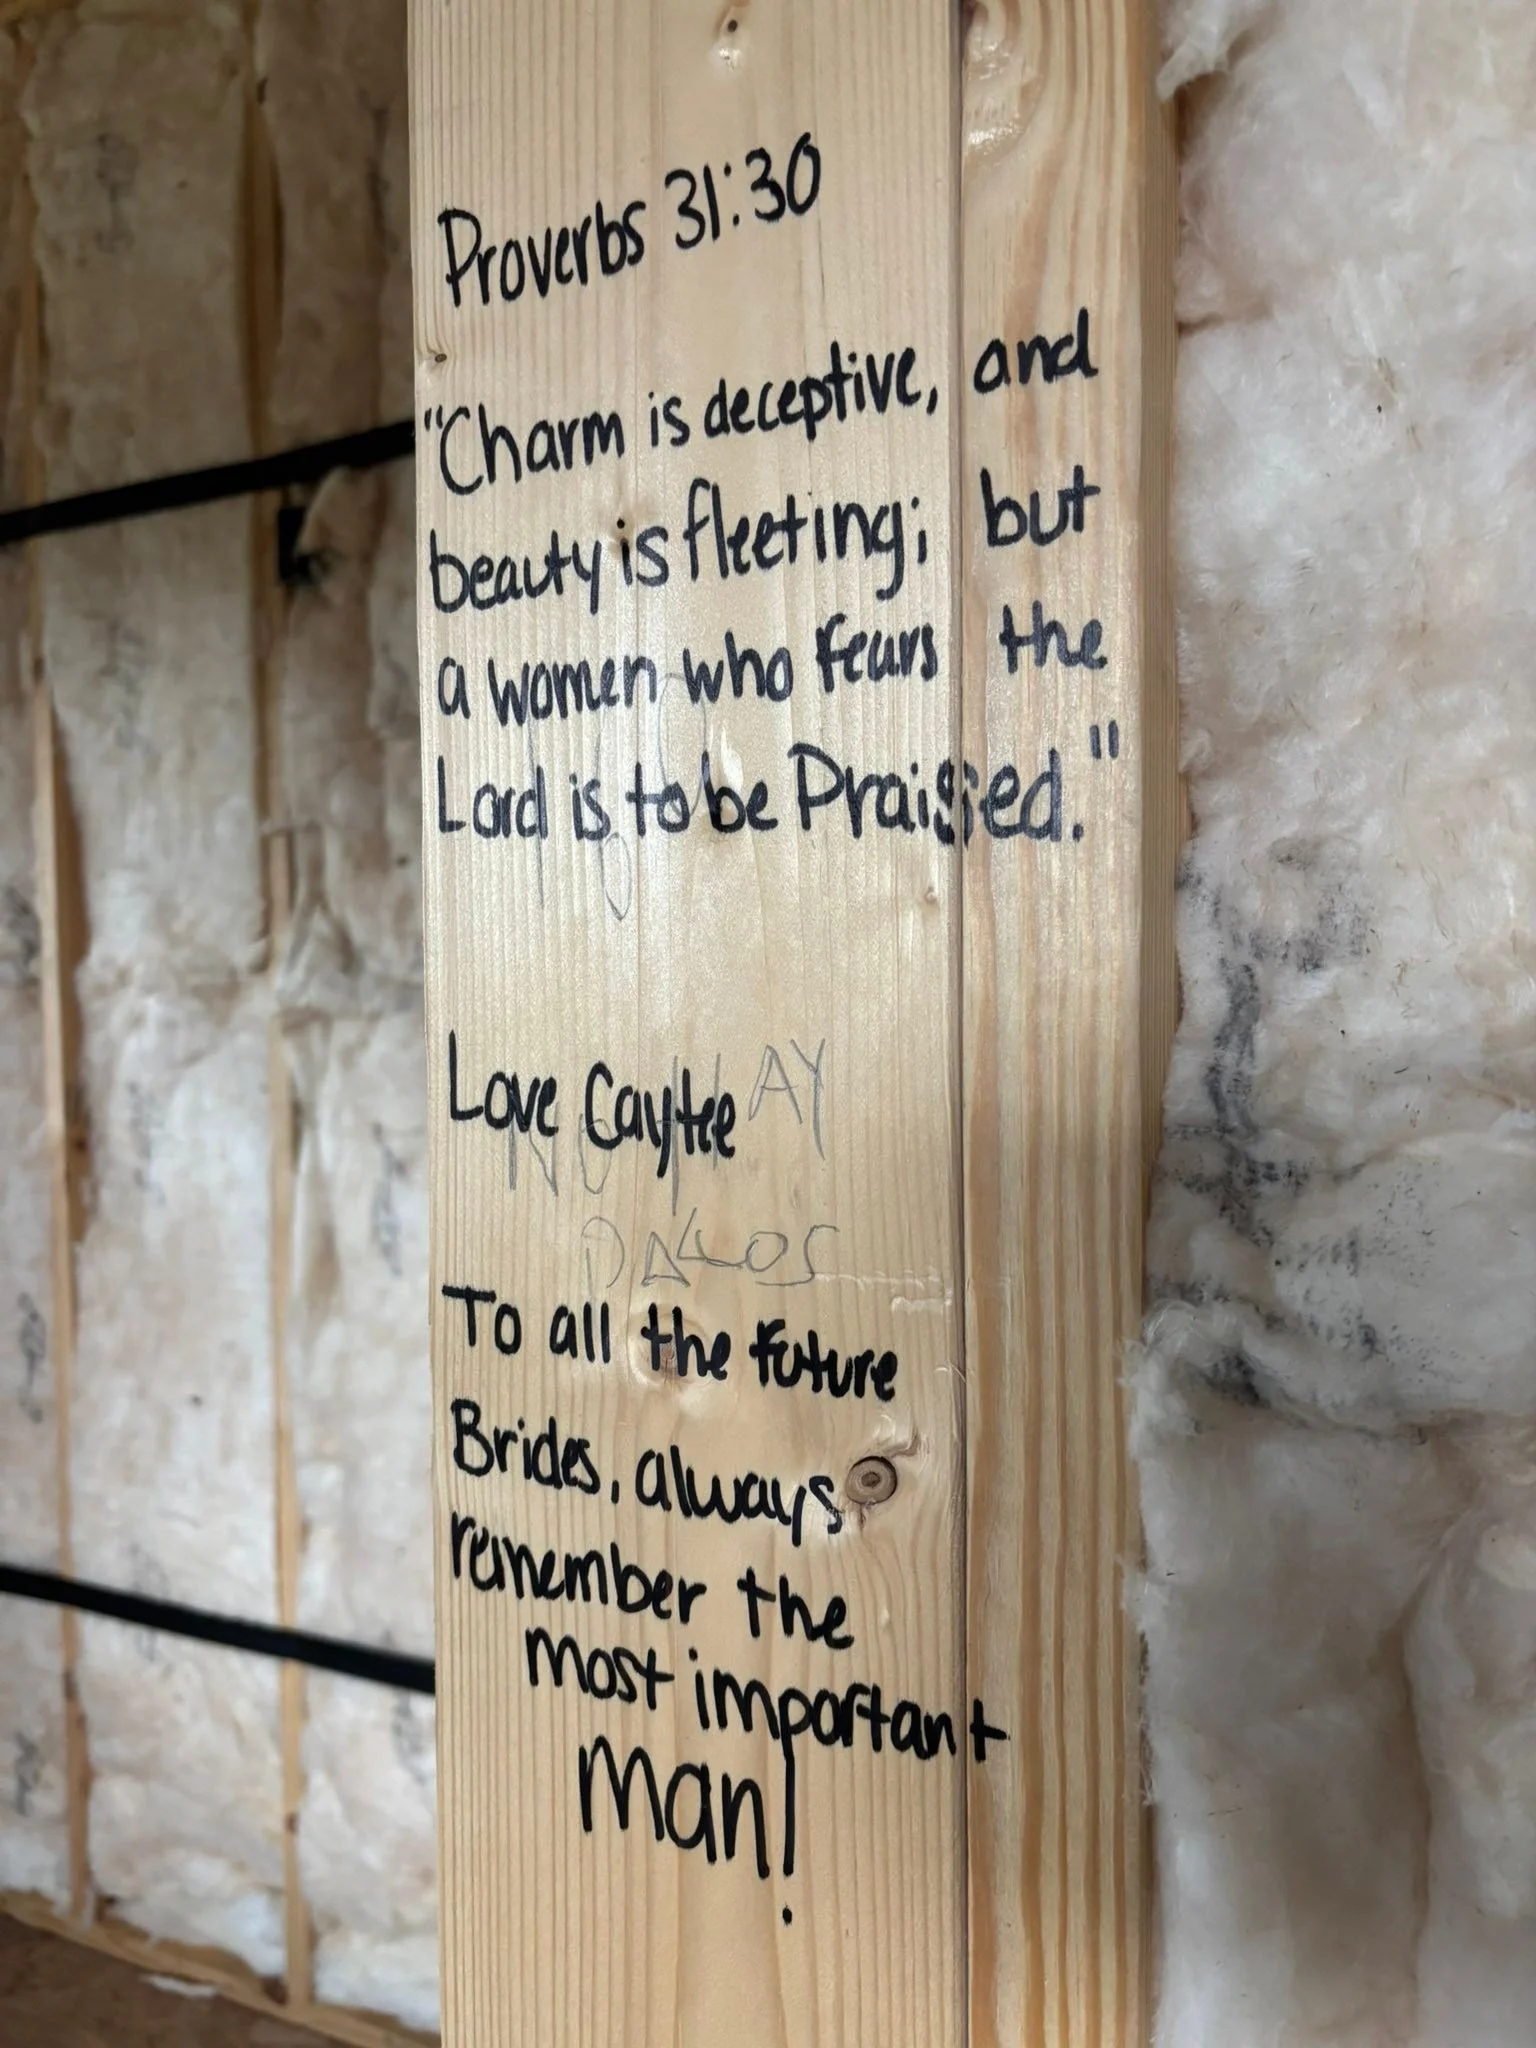 Proverbs 31:30
"Charm is deceptive, and
beauty is fleeting; but
a women who fears the
Lord is to be Praised."
Love Caytee
To all the future
Brides, always
remember the
most important
Man!